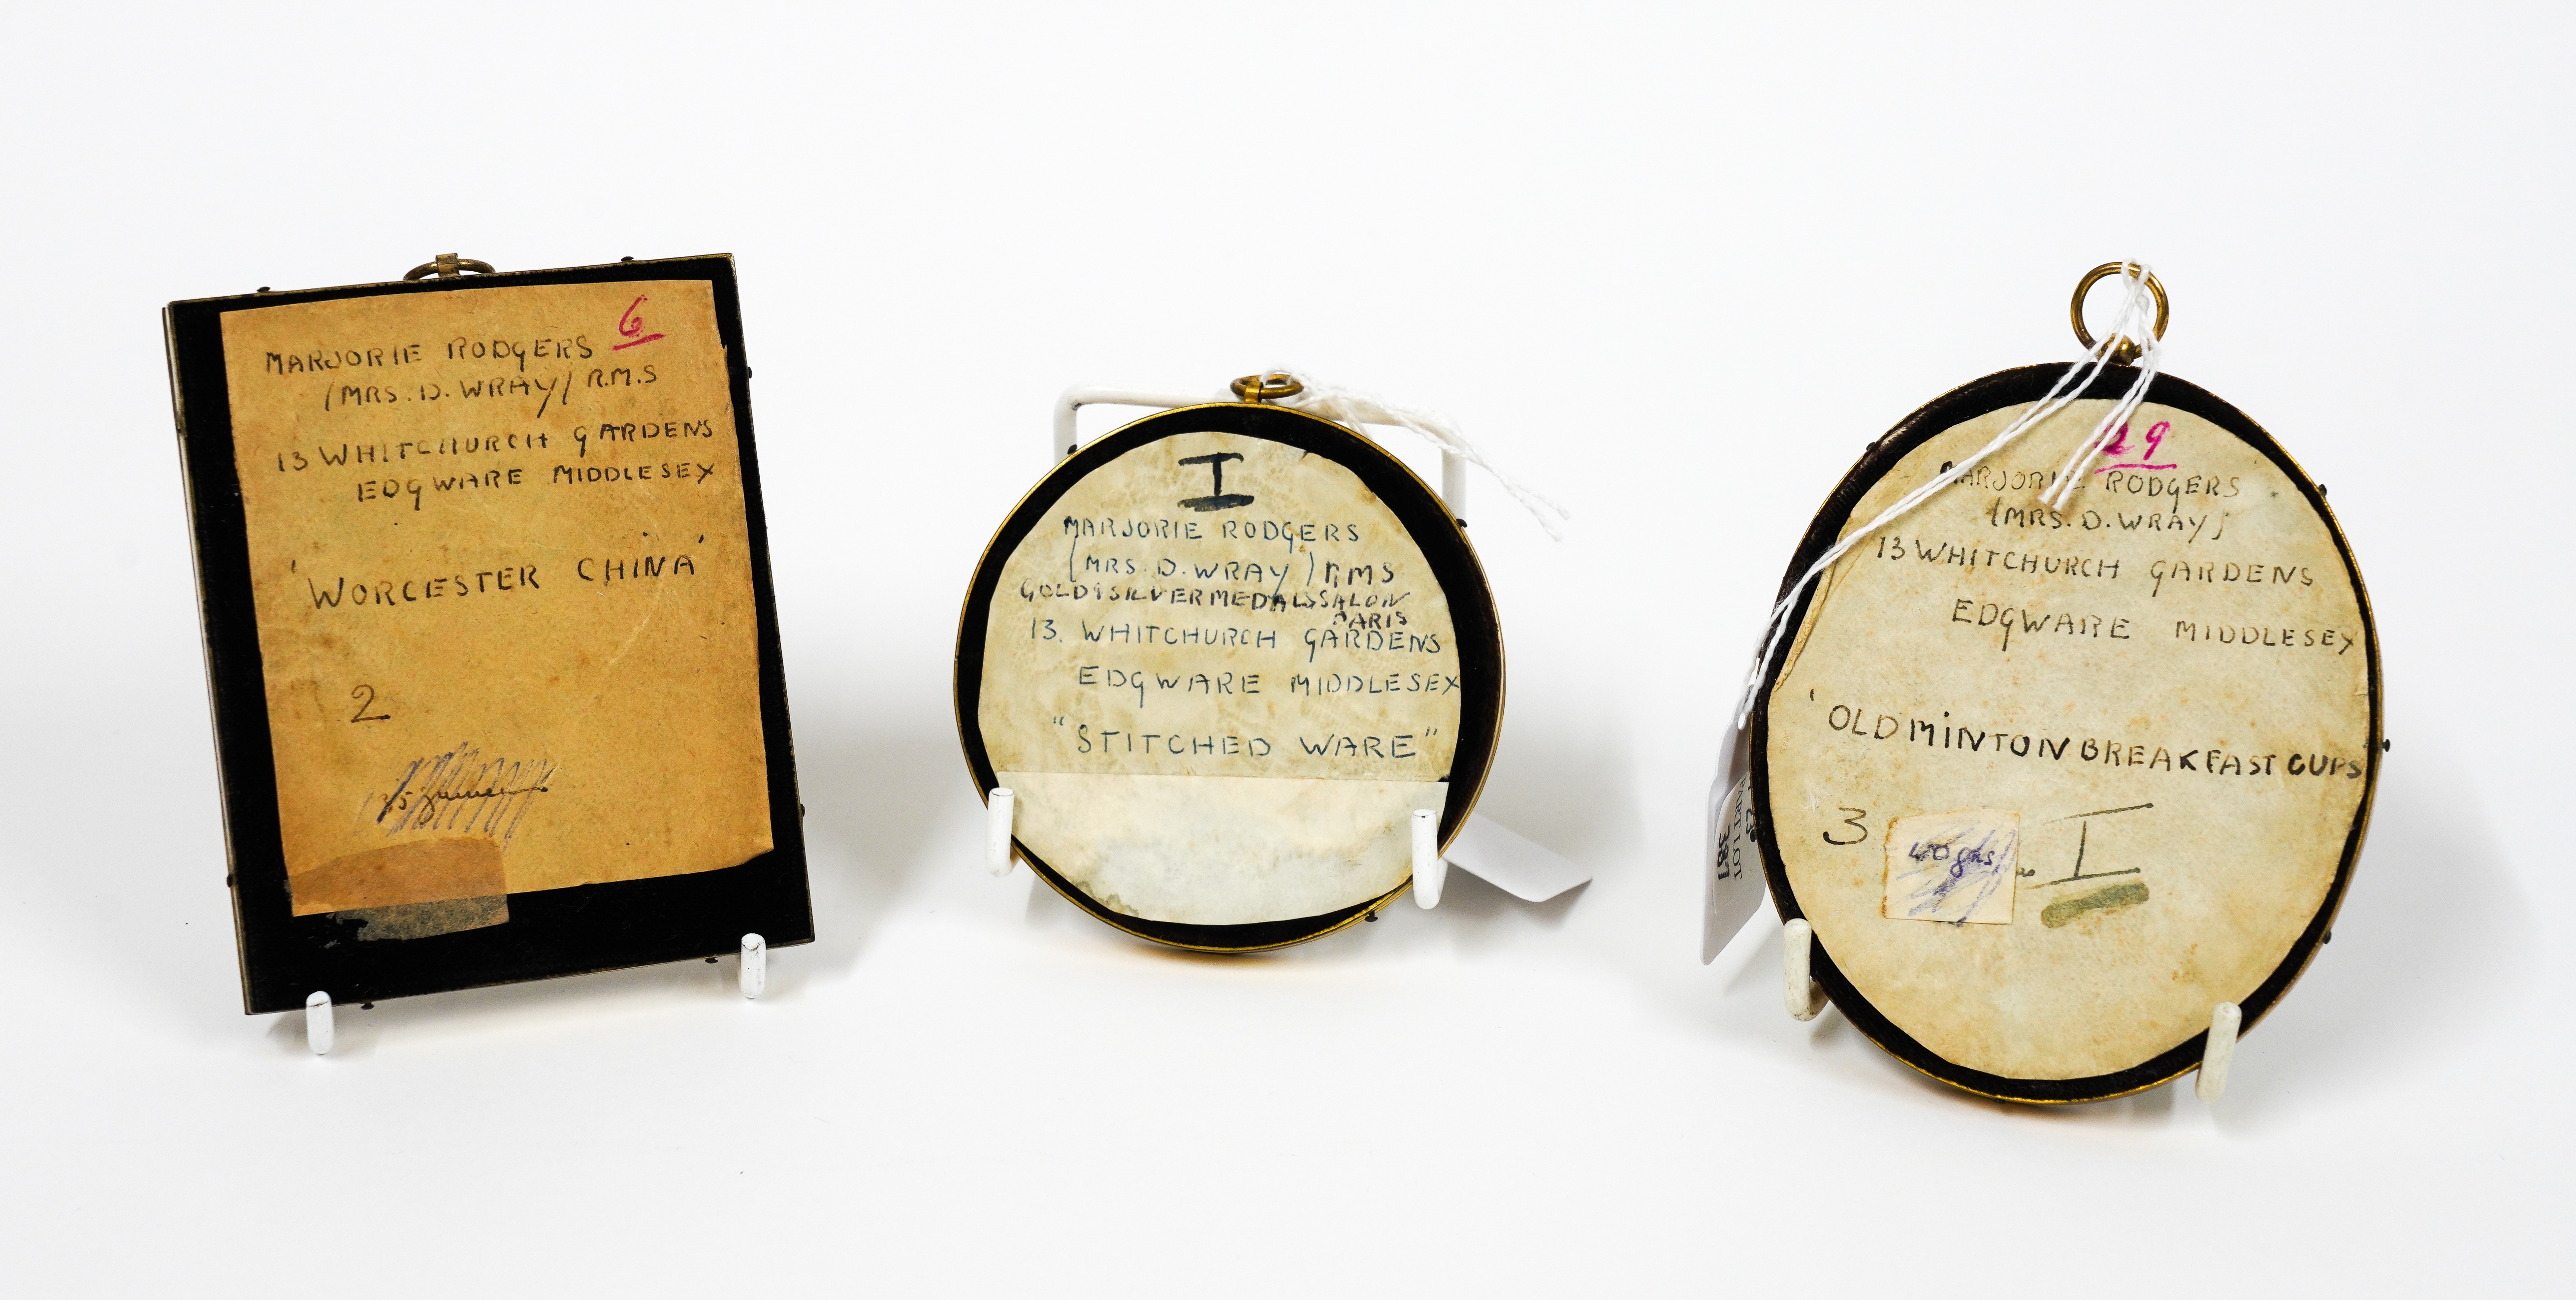 6
MARJORIE RODGERS
(MRS. D. WRAY) R.M.S
13 WHITCHURCH GARDENS
EDGWARE MIDDLESEX
'WORCESTER CHINA'
2
I
MARJORIE RODGERS
(MRS. D. WRAY) RMS
GOLD & SILVER MEDALS SALON
PARIS
13. WHITCHURCH GARDENS
EDGWARE MIDDLESEX
"STITCHED WARE"
29
MARJORIE RODGERS
(MRS. D. WRAY)
13 WHITCHURCH GARDENS
EDGWARE MIDDLESEX
'OLD MINTON BREAKFAST CUPS
3
40 gns
I
LOT
387